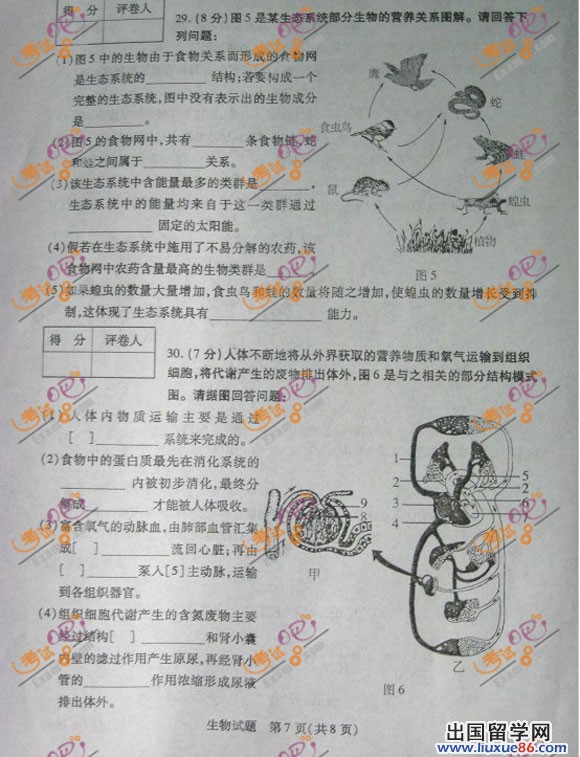 得 分 评卷人
29. (8 分) 图 5 是某生态系统部分生物的营养关系图解。请回答下
列问题:
(1) 图 5 中的生物由于食物关系而形成的食物网
是生态系统的 结构;若要构成一个
完整的生态系统,图中没有表示出的生物成分
是 。
(2) 图 5 的食物网中,共有 条食物链,蛇
和蛙之间属于 关系。
(3) 该生态系统中含能量最多的类群是 ,
生态系统中的能量均来自于这一类群通过
固定的太阳能。
(4) 假若在生态系统中施用了不易分解的农药,该
食物网中农药含量最高的生物类群是 。
鹰
蛇
食虫鸟
蛙
鼠
蝗虫
植物
图 5
(5) 如果蝗虫的数量大量增加,食虫鸟和蛙的数量将随之增加,使蝗虫的数量增长受到抑
制,这体现了生态系统具有 能力。
得 分 评卷人
30. (7 分) 人体不断地将从外界获取的营养物质和氧气运输到组织
细胞,将代谢产生的废物排出体外,图 6 是与之相关的部分结构模式
图。请据图回答问题:
(1) 人体内物质运输主要是通过
[ ] 系统来完成的。
(2) 食物中的蛋白质最先在消化系统的
内被初步消化,最终分
解成 才能被人体吸收。
(3) 富含氧气的动脉血,由肺部血管汇集
成[ ] 流回心脏;再由
[ ] 泵入[5]主动脉,运输
到各组织器官。
(4) 组织细胞代谢产生的含氮废物主要
经过结构[ ] 和肾小囊
内壁的滤过作用产生原尿,再经肾小
管的 作用浓缩形成尿液
排出体外。
1
2
3
4
5
2
6
7
9
8
甲
乙
图 6
生物试题 第 7 页(共 8 页)
考试吧
Exam8.com
出国留学网
www.liuxue86.com